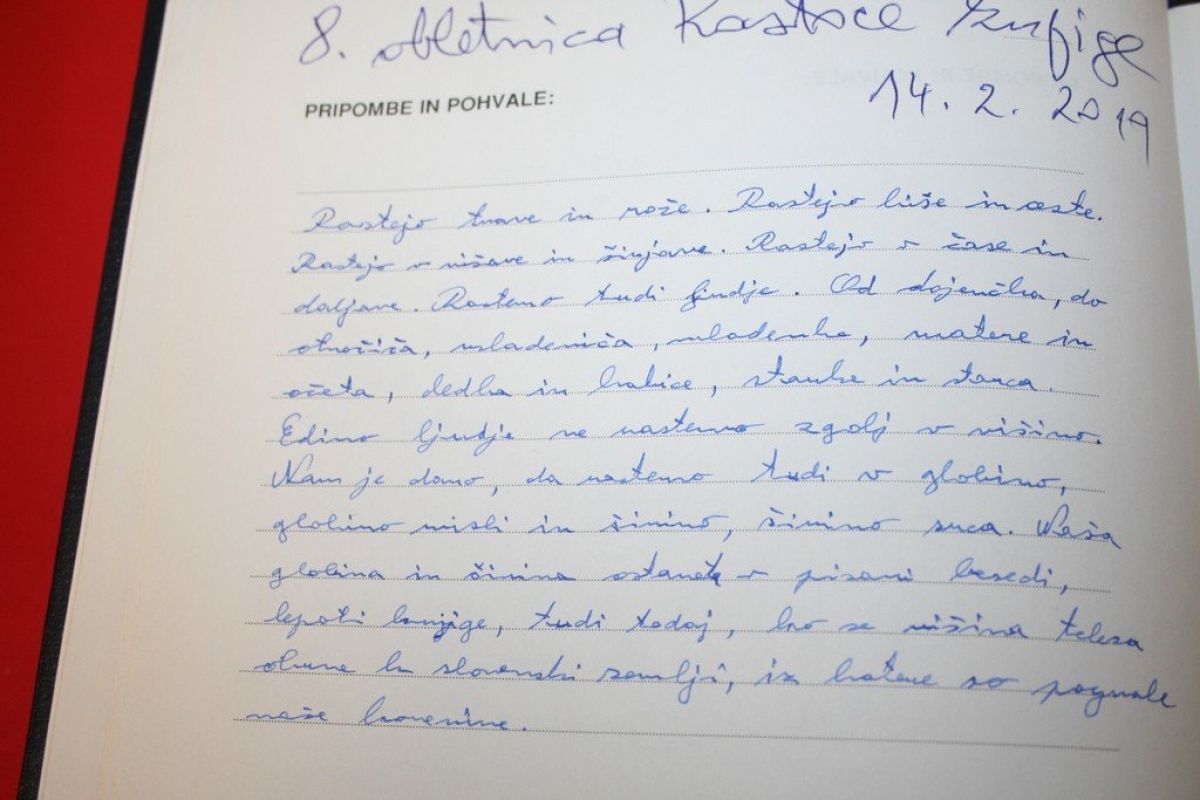 8. obletnica Kastoce knjige
PRIPOMBE IN POHVALE:
14. 2. 2019
Rastejo trave in rože. Rastejo hiše in ceste.
Rastejo v višave in širjave. Rastejo v čase in
daljave. Rastemo tudi ljudje. Od dojenčka, do
otročiča, mladeniča, mladenke, matere in
očeta, dedka in babice, starke in starca.
Edino ljudje ne rastemo zgolj v višino.
Nam je dano, da rastemo tudi v globino,
globino misli in širino, širino srca. Naša
globina in širina ostaneta v pisani besedi,
lepoti knjige, tudi tedaj, ko se višina telesa
obrne k slovenski zemlji, iz katere so pognale
naše korenine.